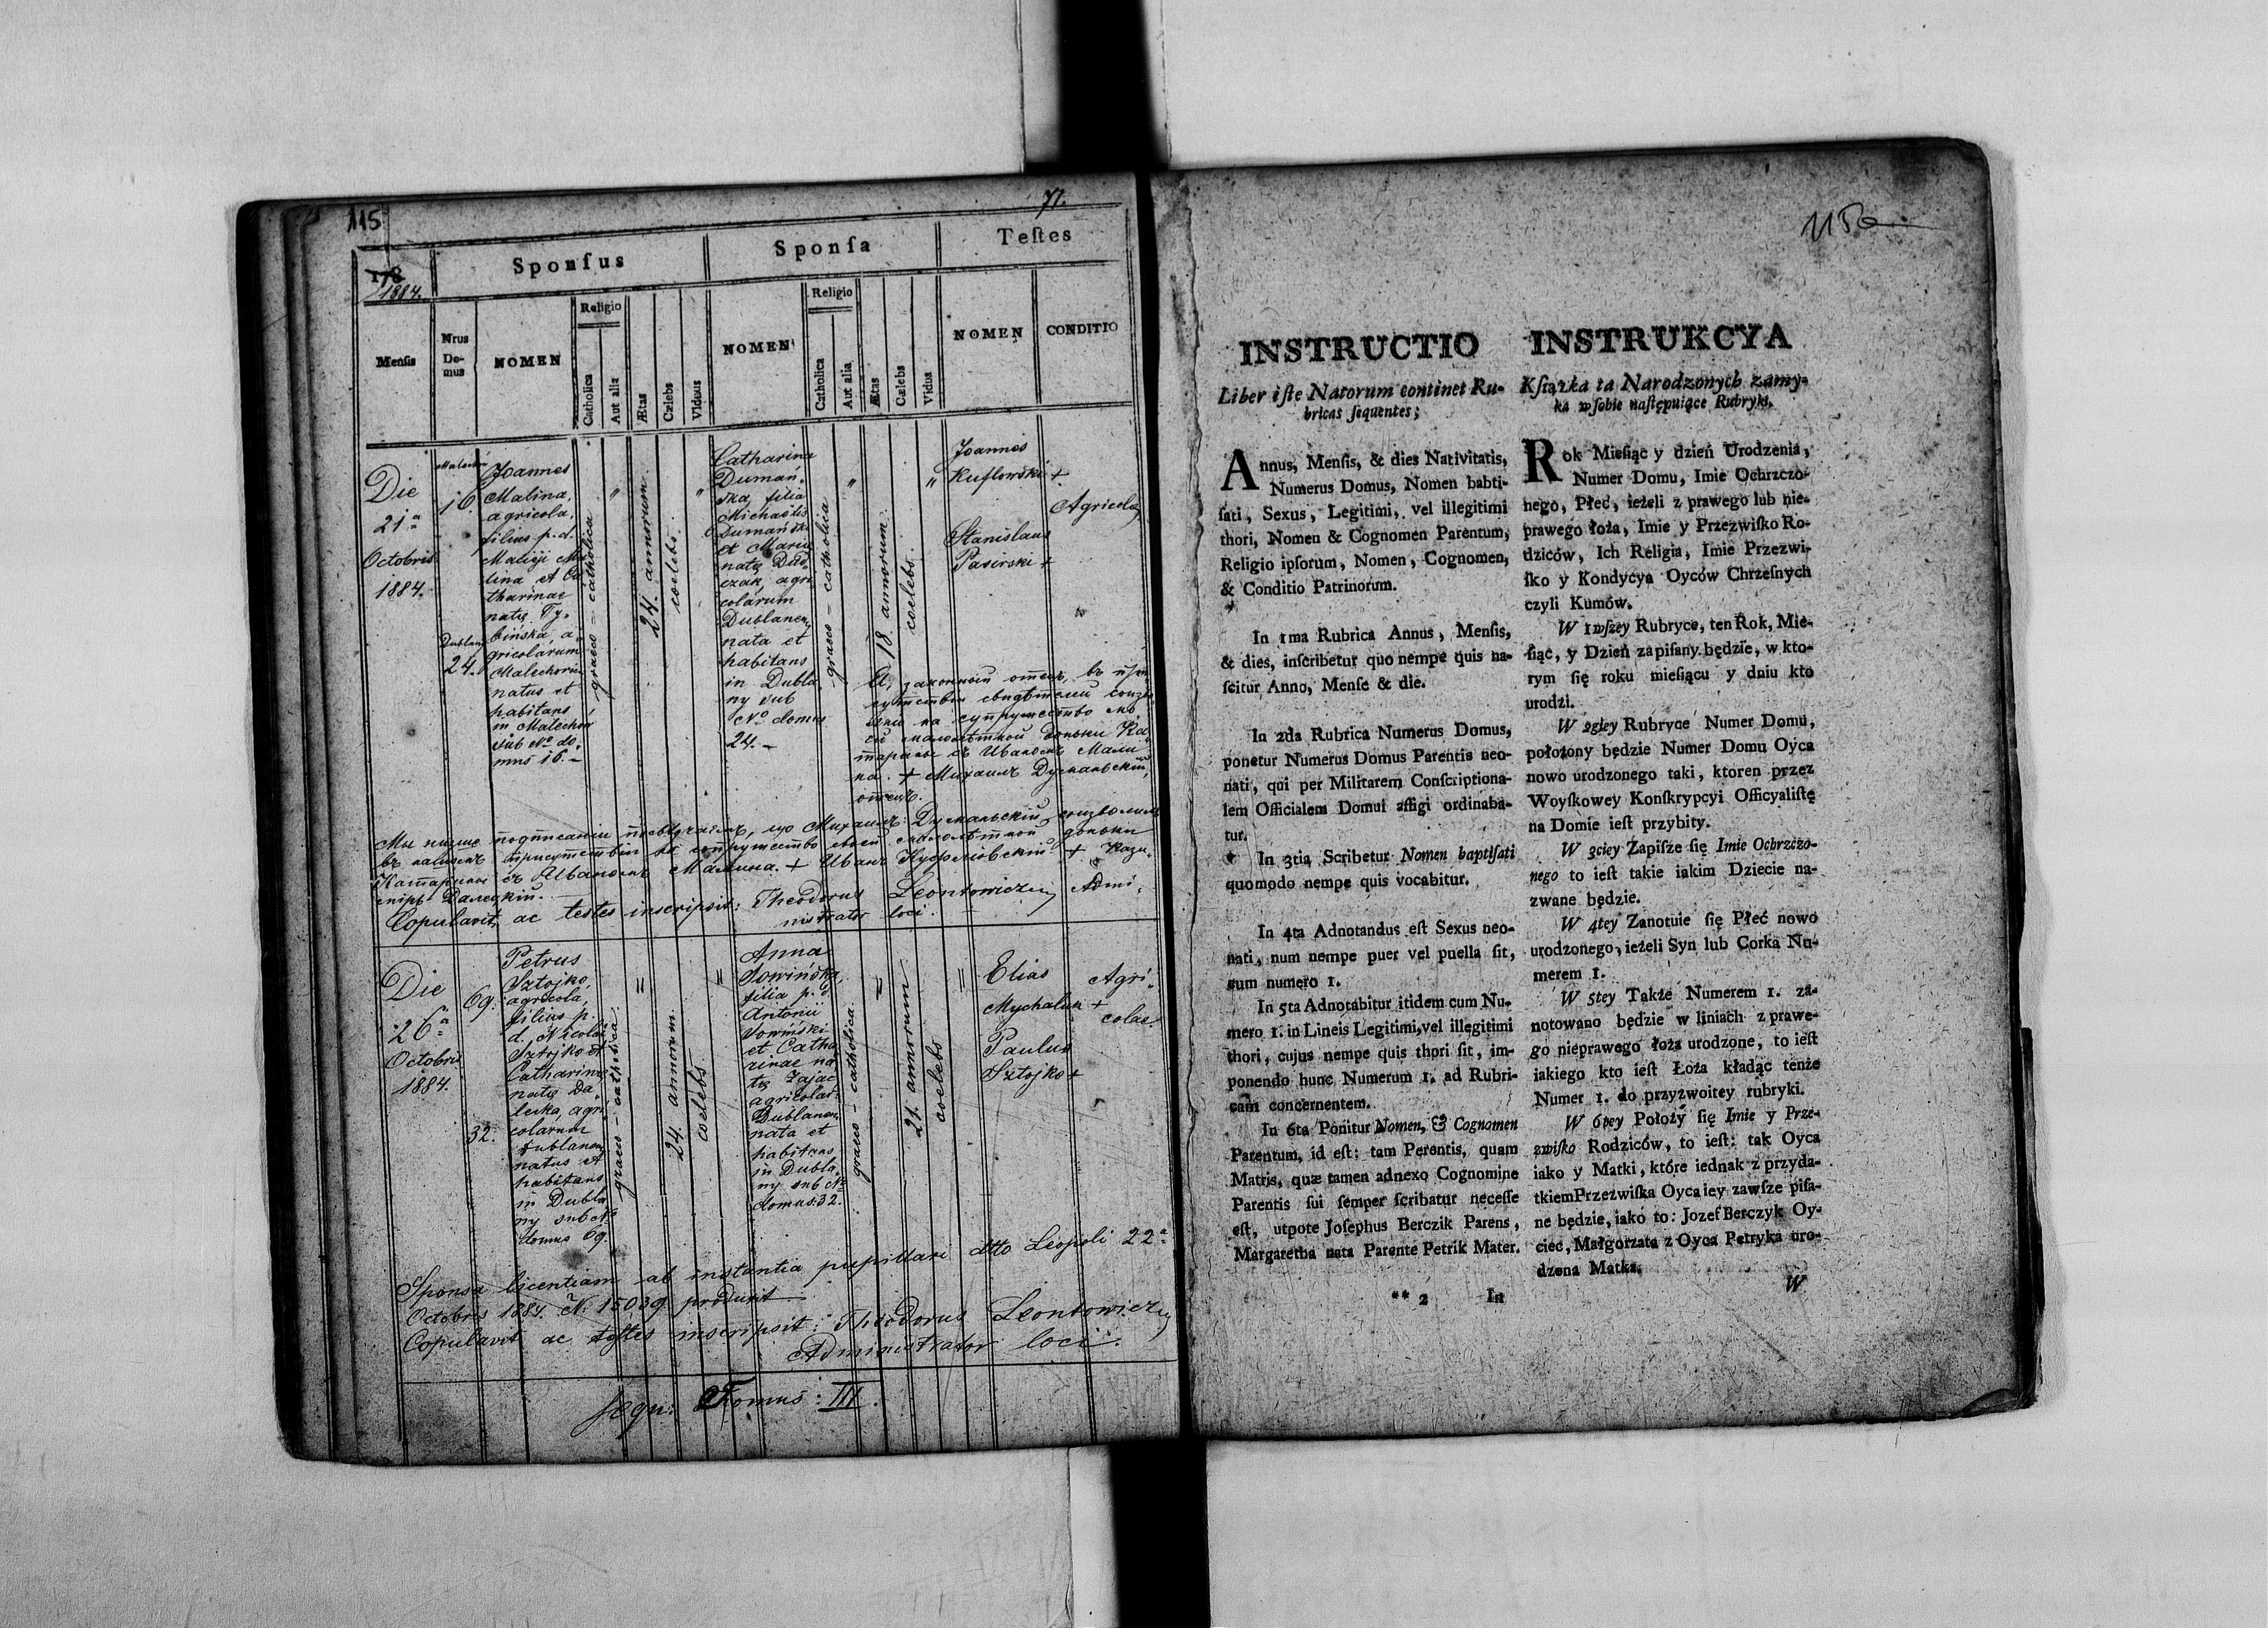 115
71.
Sponſus
Sponſa
Teſtes
178
1884.
Menſis
Nrus
Do-
mus
NOMEN
Religio
Catholica
Aut alia
Ætas
Cælebs
Viduus
NOMEN
Religio
Catholica
Aut alia
Ætas
Cælebs
Vidus
NOMEN
CONDITIO
Die
21a
Octobris
1884.
16.
Dublany
24.
Joannes
Malina,
agricola,
filius p. d.
lina et Ca
tharinae
natę Ty-
bińska, a-
gricolarum
natus et
habitans
in Malechow
sub No do-
mus 16. -
graeco - catholica
"
24. annorum
coelebs.
"
Catharina
Dumań-
ska, filia
Michaëlis
Dumański
et Mariae
natę Dud-
czak, agri
colarum
Dublanen.
nata et
habitans
in Dubla
ny sub
No domus
24. -
graeco - catholica
"
18 annorum
coelebs.
"
Joannes
Kuflowski +
Stanislaus
Pasirski +
Agricolae
Я, законный отец, въ при
сутствіи свидѣтелей соизво
ляю на супружество мо
ей малолѣтной доньки Ка
тарины съ Иваномъ Мали
на. + Михаилъ Думаньскій,
отецъ.
Мы низше подписаніи посвѣдчаемъ, що Михаилъ Думаньскій соизволилъ
въ нашемъ присутствіи на супружество своей малолѣтной доньки
Катарины съ Иваномъ Малина. + Иванъ Куфлёвскій + Кази-
міръ Далецкій.
Copulavit, ac testes inscripsit: Theodorus Leontowicz, Admi-
nistrator loci.
Die
26a
Octobris
1884.
69.
32.
Petrus
Sztojko,
agricola,
filius p.
d. Nicolai
Sztojko et
Catharinae
natę Da-
lecka, agri
colarum
Dublanen.
natus et
habitans
in Dubla
ny sub No
domus 69.
graeco - catholica
=
24. annorum
coelebs
=
Anna
Sowińska,
filia p. d.
Antonii
Sowiński
et Catha
rinae na
tę Zając
agricolar.
Dublanen.
nata et
habitans
in Dubla
ny sub No
domus: 32.
graeco - catholica
=
21. annorum
coelebs
=
Elias
Mychaluk +
Paulus
Sztojko +
Agri-
colae.
Sponsa licentiam ab instantia pupillari dtto Leopoli 22a
Octobris 1884. N. 15039 produxit
Copulavit ac testes inscripsit: Theodorus Leontowicz,
Administrator loci.
sequ: Tomus: III.
115a
INSTRUCTIO
Liber iſte Natorum continet Ru-
bricas ſequentes;
Annus, Menſis, & dies Nativitatis,
Numerus Domus, Nomen babti-
ſati, Sexus, Legitimi, vel illegitimi
thori, Nomen & Cognomen Parentum,
Religio ipſorum, Nomen, Cognomen,
& Conditio Patrinorum.
In 1ma Rubrica Annus, Menſis,
& dies, inſcribetur quo nempe quis na-
ſcitur Anno, Menſe & die.
In 2da Rubrica Numerus Domus,
ponetur Numerus Domus Parentis neo-
nati, qui per Militarem Conſcriptiona-
lem Officialem Domui affigi ordinaba-
tur.
In 3tia Scribetur Nomen baptiſati
quomodo nempe quis vocabitur.
In 4ta Adnotandus eſt Sexus neo-
nati, num nempe puer vel puella ſit,
cum numero 1.
In 5ta Adnotabitur itidem cum Nu-
mero 1. in Lineis Legitimi, vel illegitimi
thori, cujus nempe quis thori ſit, im-
ponendo hunc Numerum 1. ad Rubri-
cam concernentem.
In 6ta Ponitur Nomen, & Cognomen
Parentum, id eſt: tam Perentis, quam
Matris, quæ tamen adnexo Cognomine
Parentis ſui ſemper ſcribatur neceſſe
eſt, utpote Joſephus Berczik Parens,
Margaretha nata Parente Petrik Mater.
** 2 In
INSTRUKCYA
Kſiązka ta Narodzonych zamy-
ka w ſobie naſtępuiące Rubryki.
Rok Mieſiąc y dzień Urodzenia,
Numer Domu, Imie Ochrzczo-
nego, Płeć, ieżeli z prawego lub nie-
prawego łoża, Imie y Przezwiſko Ro-
dziców, Ich Religia, Imie Przezwi-
ſko y Kondycya Oyców Chrzeſnych
czyli Kumów.
W 1wſzey Rubryce, ten Rok, Mie-
ſiąc, y Dzień zapiſany będzie, w kto-
rym ſię roku mieſiącu y dniu kto
urodzi.
W 2giey Rubryce Numer Domu,
położony będzie Numer Domu Oyca
nowo urodzonego taki, ktoren przez
Woyſkowey Konſkrypcyi Officyaliſtę
na Domie ieſt przybity.
W 3ciey Zapiſze ſię Imie Ochrzczo-
nego to ieſt takie iakim Dziecie na-
zwane będzie.
W 4tey Zanotuie ſię Płeć nowo
urodzonego, ieżeli Syn lub Corka Nu-
merem 1.
W 5tey Także Numerem 1. za-
notowano będzie w liniach z prawe-
go nieprawego łoża urodzone, to ieſt
iakiego kto ieſt Łoża kładąc tenże
Numer 1. do przyzwoitey rubryki.
W 6tey Położy ſię Imie y Prze-
zwiſko Rodziców, to ieſt: tak Oyca
iako y Matki, które iednak z przyda-
tkiem Przezwiſka Oyca iey zawſze piſa-
ne będzie, iako to: Jozef Berczyk Oy-
ciec, Małgorzata z Oyca Petryka uro-
dzona Matka.
W